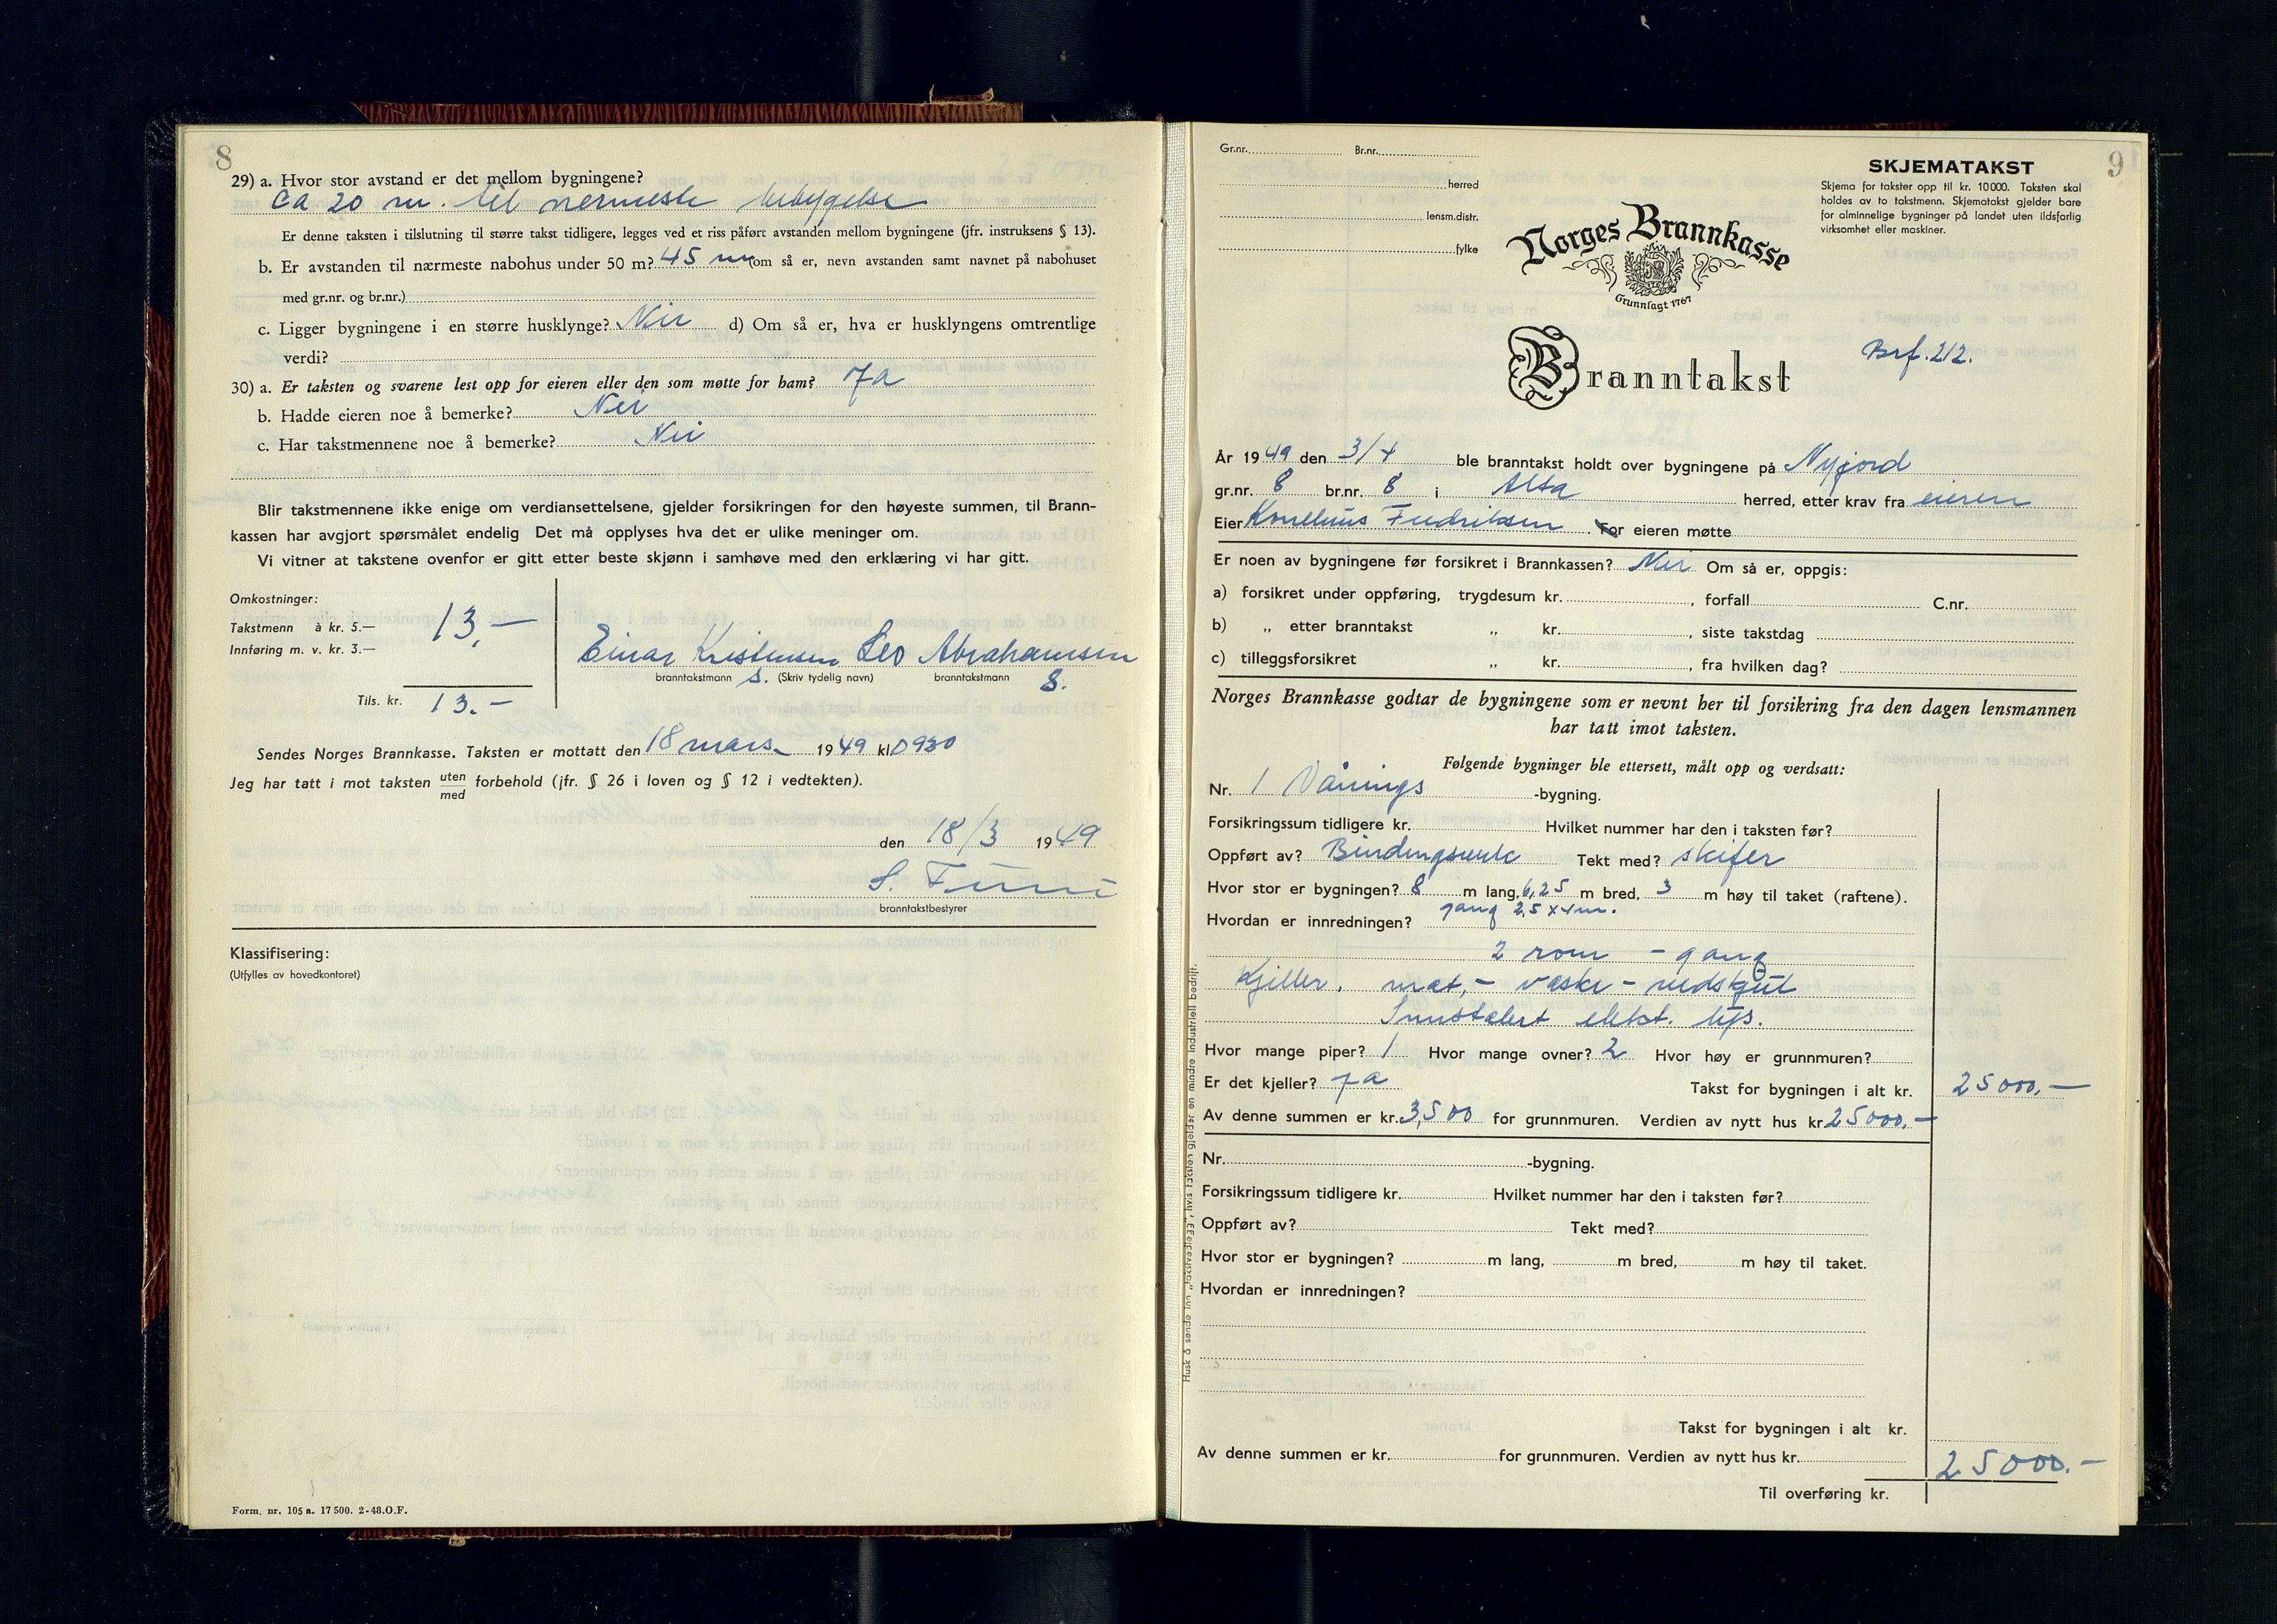 8
29) a. Hvor stor avstand er det mellom bygningene?
Ca 20 m. til nermeste bebygelse
Er denne taksten i tilslutning til større takst tidligere, legges ved et riss påført avstanden mellom bygningene (jfr. instruksens § 13).
b. Er avstanden til nærmeste nabohus under 50 m? 45 m (om så er, nevn avstanden samt navnet på nabohuset
med gr.nr. og br.nr.)
c. Ligger bygningene i en større husklynge? Nei d) Om så er, hva er husklyngens omtrentlige
verdi?
30) a. Er taksten og svarene lest opp for eieren eller den som møtte for ham? Ja
b. Hadde eieren noe å bemerke? Nei
c. Har takstmennene noe å bemerke? Nei
Blir takstmennene ikke enige om verdiansettelsene, gjelder forsikringen for den høyeste summen, til Brann-
kassen har avgjort spørsmålet endelig Det må opplyses hva det er ulike meninger om.
Vi vitner at takstene ovenfor er gitt etter beste skjønn i samhøve med den erklæring vi har gitt.
Omkostninger:
Takstmenn à kr. 5.—
Innføring m. v. kr. 3.—
13,—
Einar Kristensen Leo Abrahamsen
branntakstmann s. (Skriv tydelig navn) branntakstmann s.
Tils. kr. 13.-
Sendes Norges Brannkasse. Taksten er mottatt den 18 mars 1949 kl 0930
Jeg har tatt i mot taksten uten forbehold (jfr. § 26 i loven og § 12 i vedtekten).
med
den 18/3 1949
branntakstbestyrer
Klassifisering:
(Utfylles av hovedkontoret)
Form. nr. 105 a. 17 500. 2-48.O.F.
Gr.nr. Br.nr.
herred
lensm.distr.
fylke
9
SKJEMATAKST
Skjema for takster opp til kr. 10 000. Taksten skal
holdes av to takstmenn. Skjematakst gjelder bare
for alminnelige bygninger på landet uten ildsfarlig
virksomhet eller maskiner.
Norges Brannkasse
Grunnlagt 1767
Branntakst
Brf. 212.
År 1949 den 3/4 ble branntakst holdt over bygningene på Nyjord
gr.nr. 8 br.nr. 8 i Alta herred, etter krav fra eieren
Eier Kornelius Fredriksen. For eieren møtte
Er noen av bygningene før forsikret i Brannkassen? Nei Om så er, oppgis:
a) forsikret under oppføring, trygdesum kr. , forfall C.nr.
b) „ etter branntakst „ kr. , siste takstdag
c) tilleggsforsikret „ kr. , fra hvilken dag?
Norges Brannkasse godtar de bygningene som er nevnt her til forsikring fra den dagen lensmannen
har tatt imot taksten.
Følgende bygninger ble ettersett, målt opp og verdsatt:
Nr. 1 Vånings -bygning.
Forsikringssum tidligere kr. Hvilket nummer har den i taksten før?
Oppført av? Bindingsverk Tekt med? skifer
Hvor stor er bygningen? 8 m lang, 6,25 m bred, 3 m høy til taket (raftene).
gang 2,5 x 4 m.
Hvordan er innredningen?
2 rom - gang
Kjeller. mat,- vaske - vedskjul
Innstalert elekt. lys.
Hvor mange piper? 1 Hvor mange ovner? 2 Hvor høy er grunnmuren?
Er det kjeller? ja Takst for bygningen i alt kr. 25000,—
Av denne summen er kr. 3,500 for grunnmuren. Verdien av nytt hus kr 25000.—
Nr. -bygning.
Forsikringssum tidligere kr. Hvilket nummer har den i taksten før?
Oppført av? Tekt med?
Hvor stor er bygningen? m lang, m bred, m høy til taket.
Hvordan er innredningen?
Takst for bygningen i alt kr.
Av denne summen er kr. for grunnmuren. Verdien av nytt hus kr.
25000.-
Til overføring kr.
Husk å sende inn „takstvedlegg", hvis taksten gjelder en mindre industriell bedrift.